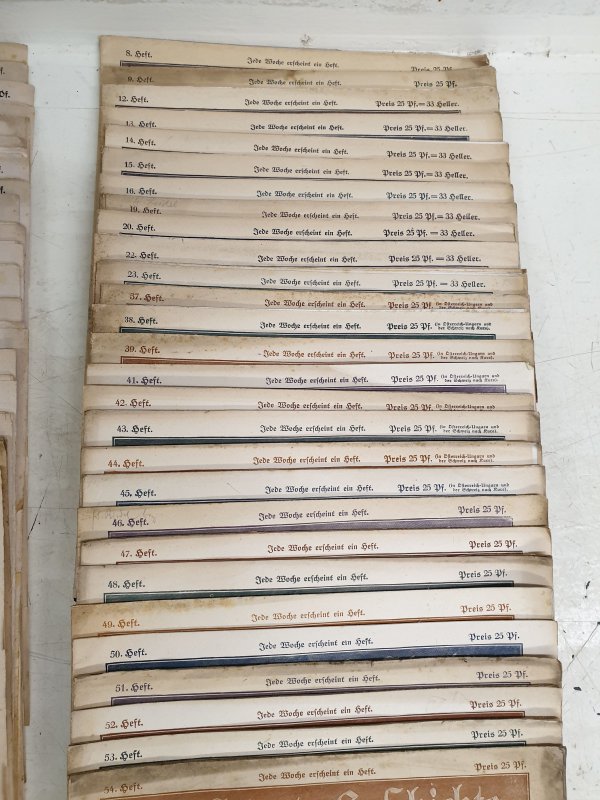 8. Heft. Jede Woche erscheint ein Heft. Preis 25 Pf.
9. Heft. Jede Woche erscheint ein Heft. Preis 25 Pf.
12. Heft. Jede Woche erscheint ein Heft. Preis 25 Pf. = 33 Heller.
13. Heft. Jede Woche erscheint ein Heft. Preis 25 Pf. = 33 Heller.
14. Heft. Jede Woche erscheint ein Heft. Preis 25 Pf. = 33 Heller.
15. Heft. Jede Woche erscheint ein Heft. Preis 25 Pf. = 33 Heller.
16. Heft. Jede Woche erscheint ein Heft. Preis 25 Pf. = 33 Heller.
19. Heft. Jede Woche erscheint ein Heft. Preis 25 Pf. = 33 Heller.
20. Heft. Jede Woche erscheint ein Heft. Preis 25 Pf. = 33 Heller.
22. Heft. Jede Woche erscheint ein Heft. Preis 25 Pf. = 33 Heller.
23. Heft. Jede Woche erscheint ein Heft. Preis 25 Pf. = 33 Heller.
37. Heft. Jede Woche erscheint ein Heft. Preis 25 Pf. (in Österreich-Ungarn und
38. Heft. Jede Woche erscheint ein Heft. Preis 25 Pf. (in Österreich-Ungarn und der Schweiz nach Kurs).
39. Heft. Jede Woche erscheint ein Heft. Preis 25 Pf. (in Österreich-Ungarn und der Schweiz nach Kurs).
41. Heft. Jede Woche erscheint ein Heft. Preis 25 Pf. (in Österreich-Ungarn und der Schweiz nach Kurs).
42. Heft. Jede Woche erscheint ein Heft. Preis 25 Pf. (in Österreich-Ungarn und
43. Heft. Jede Woche erscheint ein Heft. Preis 25 Pf. (in Österreich-Ungarn und der Schweiz nach Kurs).
44. Heft. Jede Woche erscheint ein Heft. Preis 25 Pf. (in Österreich-Ungarn und der Schweiz nach Kurs).
45. Heft. Jede Woche erscheint ein Heft. Preis 25 Pf. (in Österreich-Ungarn und der Schweiz nach Kurs).
46. Heft. Jede Woche erscheint ein Heft. Preis 25 Pf.
47. Heft. Jede Woche erscheint ein Heft. Preis 25 Pf.
48. Heft. Jede Woche erscheint ein Heft. Preis 25 Pf.
49. Heft. Jede Woche erscheint ein Heft. Preis 25 Pf.
50. Heft. Jede Woche erscheint ein Heft. Preis 25 Pf.
51. Heft. Jede Woche erscheint ein Heft. Preis 25 Pf.
52. Heft. Jede Woche erscheint ein Heft. Preis 25 Pf.
53. Heft. Jede Woche erscheint ein Heft. Preis 25 Pf.
54. Heft. Jede Woche erscheint ein Heft. Preis 25 Pf.